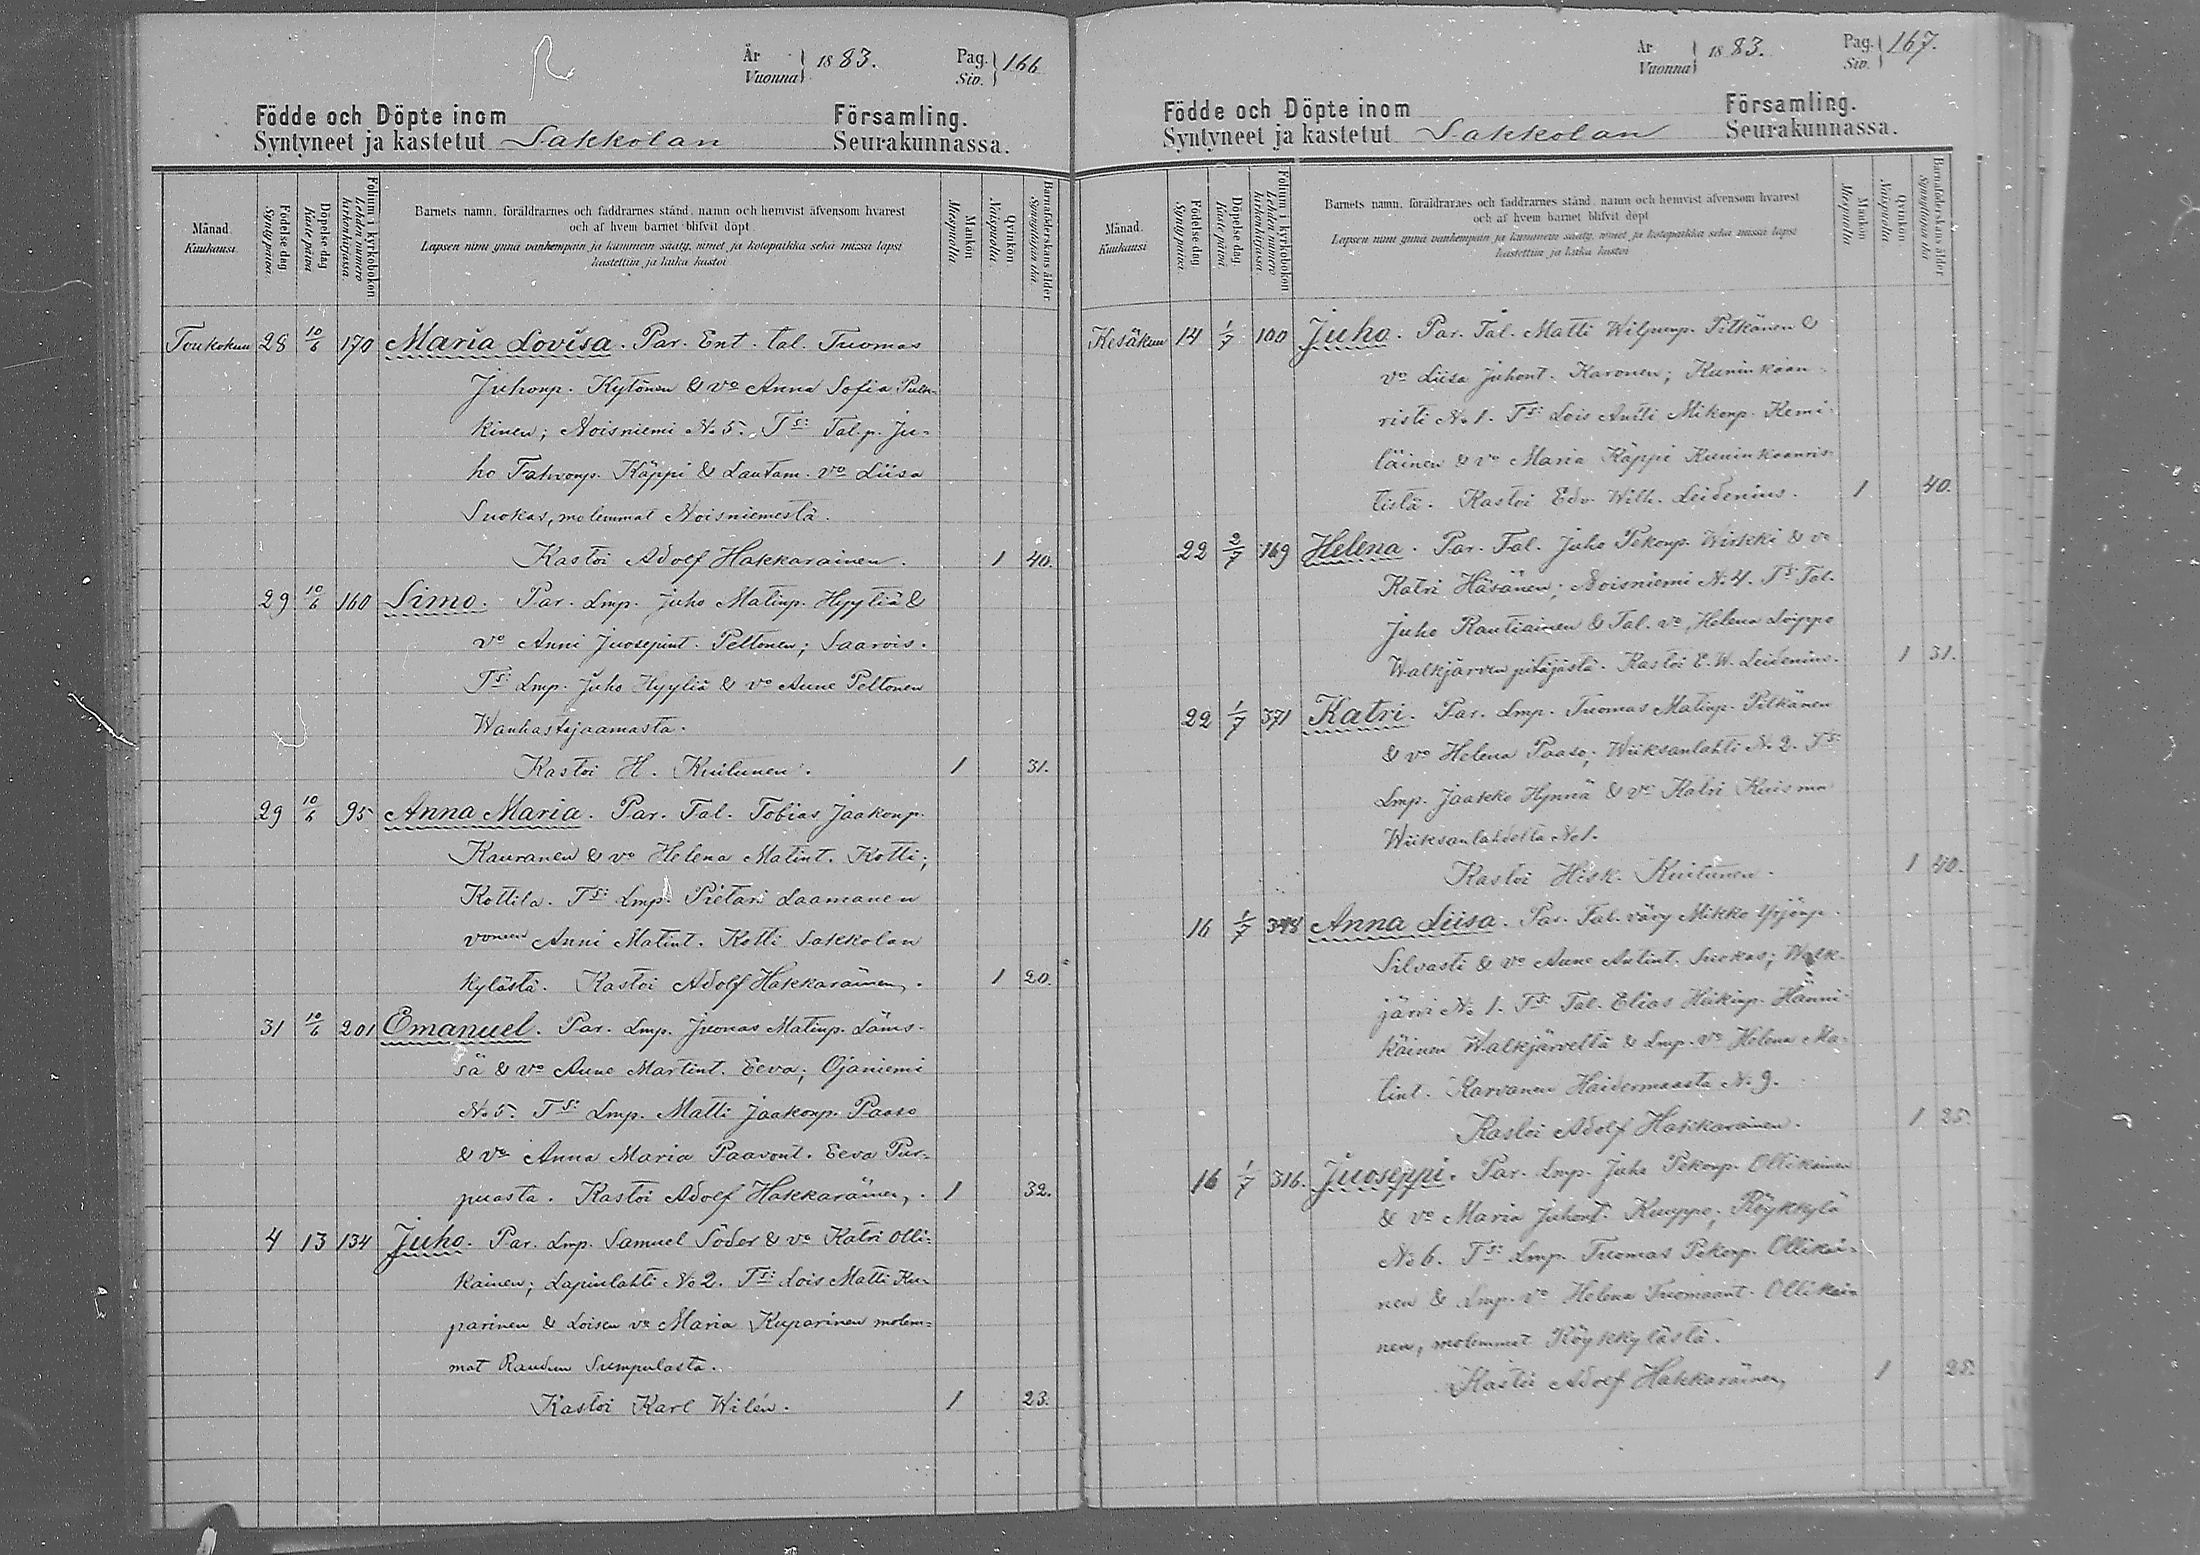 År
Vuonna 1883.
Pag.
Siv. 166
Födde och Döpte inom Församling.
Syntyneet ja kastetut Sakkolan Seurakunnassa.
Månad.
Kuukausi.
Födelsedag
Syntypäivä
Döpelsedag
Kastepäivä
Folium i kyrkoboken
Lehden numero kirkonkirjassa
Barnets namn, föräldrarnes och faddrarnes stånd, namn och hemvist äfvensom hvarest
och af hvem barnet blifvit döpt
Lapsen nimi ynnä vanhempain ja kummein sääty, nimet ja kotopaikka sekä missä lapsi
kastettiin ja kuka kastoi
Mankön
Miespuolia
Qvinkön
Naispuolia
Barnaföderskans ålder
Synnyttäjän ikä
Toukokuu 28 10/6 170 Maria Lovisa. Par. Ent. tal. Tuomas
Juhonp. Kytönen & vo Anna Sofia Pulk-
kinen; Noisniemi No 5. Tst: Tal.p. Ju-
ho Tahvonp. Käppi & Lautam. vo Liisa
Suokas, molemmat Noisniemestä.
Kastoi Adolf Hakkarainen. 1 40.
29 10/6 160 Simo. Par. Lmp. Juho Matinp. Hyytiä &
vo Anni Juosepint. Peltonen; Saarois.
Tst: Lmp. Juho Hyytiä & vo Anne Peltonen
Wanhastajaamasta.
Kastoi H. Kuitunen. 1 31.
29 10/6 95 Anna Maria. Par. Tal. Tobias Jaakonp.
Kauranen & vo Helena Matint. Kotti;
Kottila. Tst: Lmp. Pietari Laamanen
Anni Matint. Kotti Sakkolan
kylästä. Kastoi Adolf Hakkaräinen. 1 20.
31 10/6 201 Emanuel. Par. Lmp. Juonas Matinp. Läms-
sä & vo Anne Martint. Eeva; Ojaniemi
No 5. Tst: Lmp. Matti Jaakonp. Paaso
& vo Anna Maria Paavont. Eeva Pur-
puasta. Kastoi Adolf Hakkaräinen. 1 32.
4 13 134 Juho. Par. Lmp. Samuel Söder & vo Katri Olli-
kainen; Lapinlahti No 2. Tst: Lois Matti Ku-
parinen & Loisen vo Maria Kuparinen molem-
mat Raudun Sumpulasta.
Kastoi Karl Wilén. 1 23.
År
Vuonna 1883.
Pag.
Siv. 167.
Födde och Döpte inom Församling.
Syntyneet ja kastetut Sakkolan Seurakunnassa.
Månad.
Kuukausi.
Födelsedag
Syntypäivä
Döpelsedag
Kastepäivä
Folium i kyrkoboken
Lehden numero kirkonkirjassa
Barnets namn, föräldrarnes och faddrarnes stånd, namn och hemvist äfvensom hvarest
och af hvem barnet blifvit döpt
Lapsen nimi ynnä vanhempain ja kummein sääty, nimet ja kotopaikka sekä missä lapsi
kastettiin ja kuka kastoi
Mankön
Miespuolia
Qvinkön
Naispuolia
Barnaföderskans ålder
Synnyttäjän ikä
Kesäkuu 14 1/7 100 Juho. Par. Tal. Matti Wilpunp. Pitkänen &
vo Liisa Juhont. Karonen; Kuninkaan-
risti No 1. Tst: Lois Antti Mikonp. Kemi-
läinen & vo Maria Käppi Kuninkaanris-
tistä. Kastoi Edv. Wilh. Leidenius. 1 40.
22 2/7 169 Helena. Par. Tal. Juho Pekonp. Wirkki & vo
Katri Häsänen; Noisniemi No 4. Tst Tal.
Juho Rautiainen & Tal. vo, Helena Löppö
Walkjärven pitäjästä. Kastoi E. W. Leidenius. 1 31.
22 1/7 371 Katri. Par. Lmp. Tuomas Matinp. Pitkänen
& vo Helena Paaso; Wiiksanlahti No 2. Tst:
Lmp. Jaakko Hynnä & vo Katri Kuisma
Wiiksanlahdelta No 1.
Kastoi Hisk. Kuitunen. 1 40.
16 1/7 348 Anna Liisa. Par. Tal. väry Mikko Yrjönp.
Silvasti & vo Anne Antint. Suokas; Walk-
järvi No 1. Tst: Tal. Elias Heikinp. Hänni-
käinen Walkjärveltä & Lmp. vo Helena Ma-
tint. Karvanen Haidermaasta No 9.
Kastoi Adolf Hakkarainen. 1 25.
16 1/7 316. Juoseppi. Par. Lmp. Juho Pekonp. Ollikainen
& vo Maria Juhont. Kuuppo; Röykkylä
No 6. Tst: Lmp. Tuomas Pekonp. Ollikai-
nen & Lmp. vo Helena Tuomaant. Ollikai-
nen, molemmat Röykkylästä.
Kastoi Adolf Hakkaräinen, 1 28.